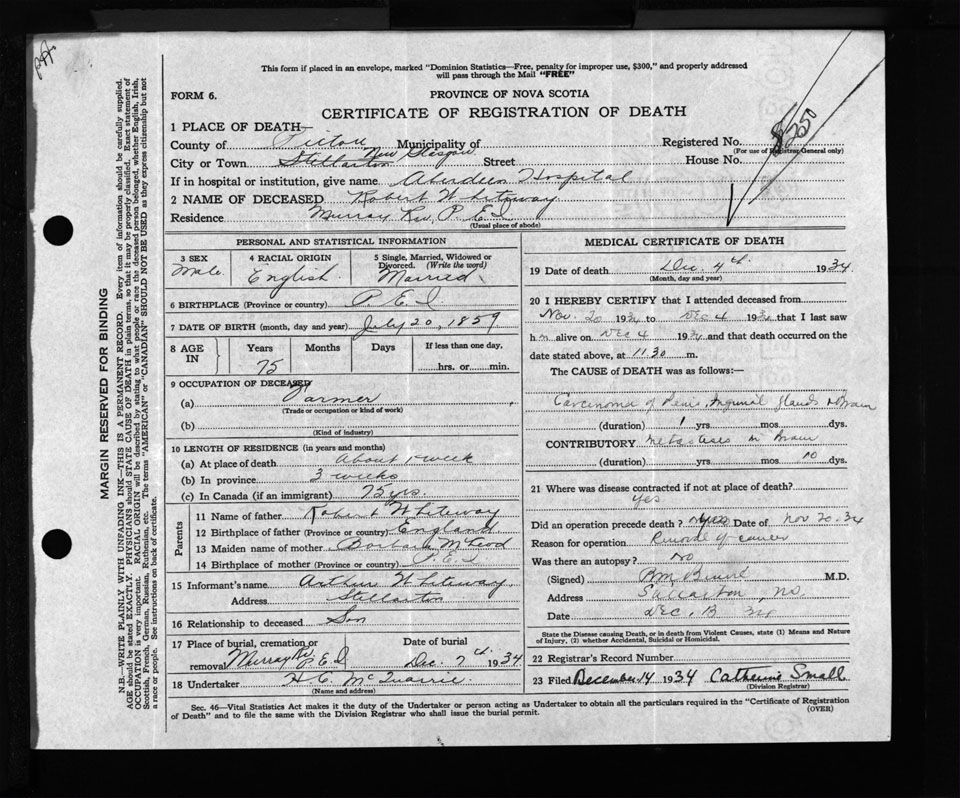 This form if placed in an envelope, marked "Dominion Statistics—Free, penalty for improper use, $300," and properly addressed
will pass through the Mail "FREE"
FORM 6.
PROVINCE OF NOVA SCOTIA
CERTIFICATE OF REGISTRATION OF DEATH
1 PLACE OF DEATH—
County of Pictou Municipality of Registered No. 
(For use of Registrar General only)
City or Town Stellarton New Glasgow Street House No.
If in hospital or institution, give name Aberdeen Hospital
2 NAME OF DECEASED Robert Whiteway
Residence Murray Riv. P.E.I
(Usual place of abode)
PERSONAL AND STATISTICAL INFORMATION
3 SEX Male
4 RACIAL ORIGIN English
5 Single, Married, Widowed or Divorced. (Write the word) Married
6 BIRTHPLACE (Province or country) P.E.I
7 DATE OF BIRTH (month, day and year) July 20, 1859
8 AGE IN Years Months Days If less than one day,
75 hrs. or min.
9 OCCUPATION OF DECEASED
(a) Farmer
(Trade or occupation or kind of work)
(b)
(Kind of industry)
10 LENGTH OF RESIDENCE (in years and months)
(a) At place of death About 1 week
(b) In province 3 weeks
(c) In Canada (if an immigrant) 75 yrs.
Parents
11 Name of father Robert Whiteway
12 Birthplace of father (Province or country) England
13 Maiden name of mother Barbara McLeod
14 Birthplace of mother (Province or country) P.E.I
15 Informant's name Arthur Whiteway
Address Stellarton
16 Relationship to deceased Son
17 Place of burial, cremation or removal Murray Riv. P.E.I
Date of burial Dec. 7th 1934
18 Undertaker H.C. McQuarrie
(Name and address)
MEDICAL CERTIFICATE OF DEATH
19 Date of death Dec. 4th 1934
(Month, day and year)
20 I HEREBY CERTIFY that I attended deceased from
Nov. 20 1934 to Dec 4 1934 that I last saw
h m alive on Dec 4 1934 and that death occurred on the
date stated above, at 11.30 m.
The CAUSE of DEATH was as follows:—
Carcinoma of Penis, Inguinal Glands & Brain
(duration) 1 yrs. mos. dys.
CONTRIBUTORY Metastases in Brain
(duration) yrs. mos 10 dys.
21 Where was disease contracted if not at place of death?
Yes
Did an operation precede death? Yes Date of Nov 20. 34
Reason for operation of cancer
Was there an autopsy? No
(Signed) M.D.
Address Stellarton, NS.
Date Dec. 13 34
State the Disease causing Death, or in death from Violent Causes, state (1) Means and Nature
of Injury, (2) whether Accidental, Suicidal or Homicidal.
22 Registrar's Record Number
23 Filed December 14 1934 Catherine Small
(Division Registrar)
Sec. 46—Vital Statistics Act makes it the duty of the Undertaker or person acting as Undertaker to obtain all the particulars required in the "Certificate of Registration
of Death" and to file the same with the Division Registrar who shall issue the burial permit.
(OVER)
MARGIN RESERVED FOR BINDING
N.B.—WRITE PLAINLY WITH UNFADING INK—THIS IS A PERMANENT RECORD. Every item of information should be carefully supplied.
AGE should be stated EXACTLY. PHYSICIANS should STATE CAUSE OF DEATH in plain terms, so that it may be properly classified. Exact statement of
OCCUPATION is very important. RACIAL ORIGIN will be described by stating to what people or race the deceased person belonged, whether English, Irish,
Scottish, French, German, Russian, Ruthenian, etc. The terms "AMERICAN" or "CANADIAN" SHOULD NOT BE USED as they express citizenship but not
a race or people. See instructions on back of certificate.